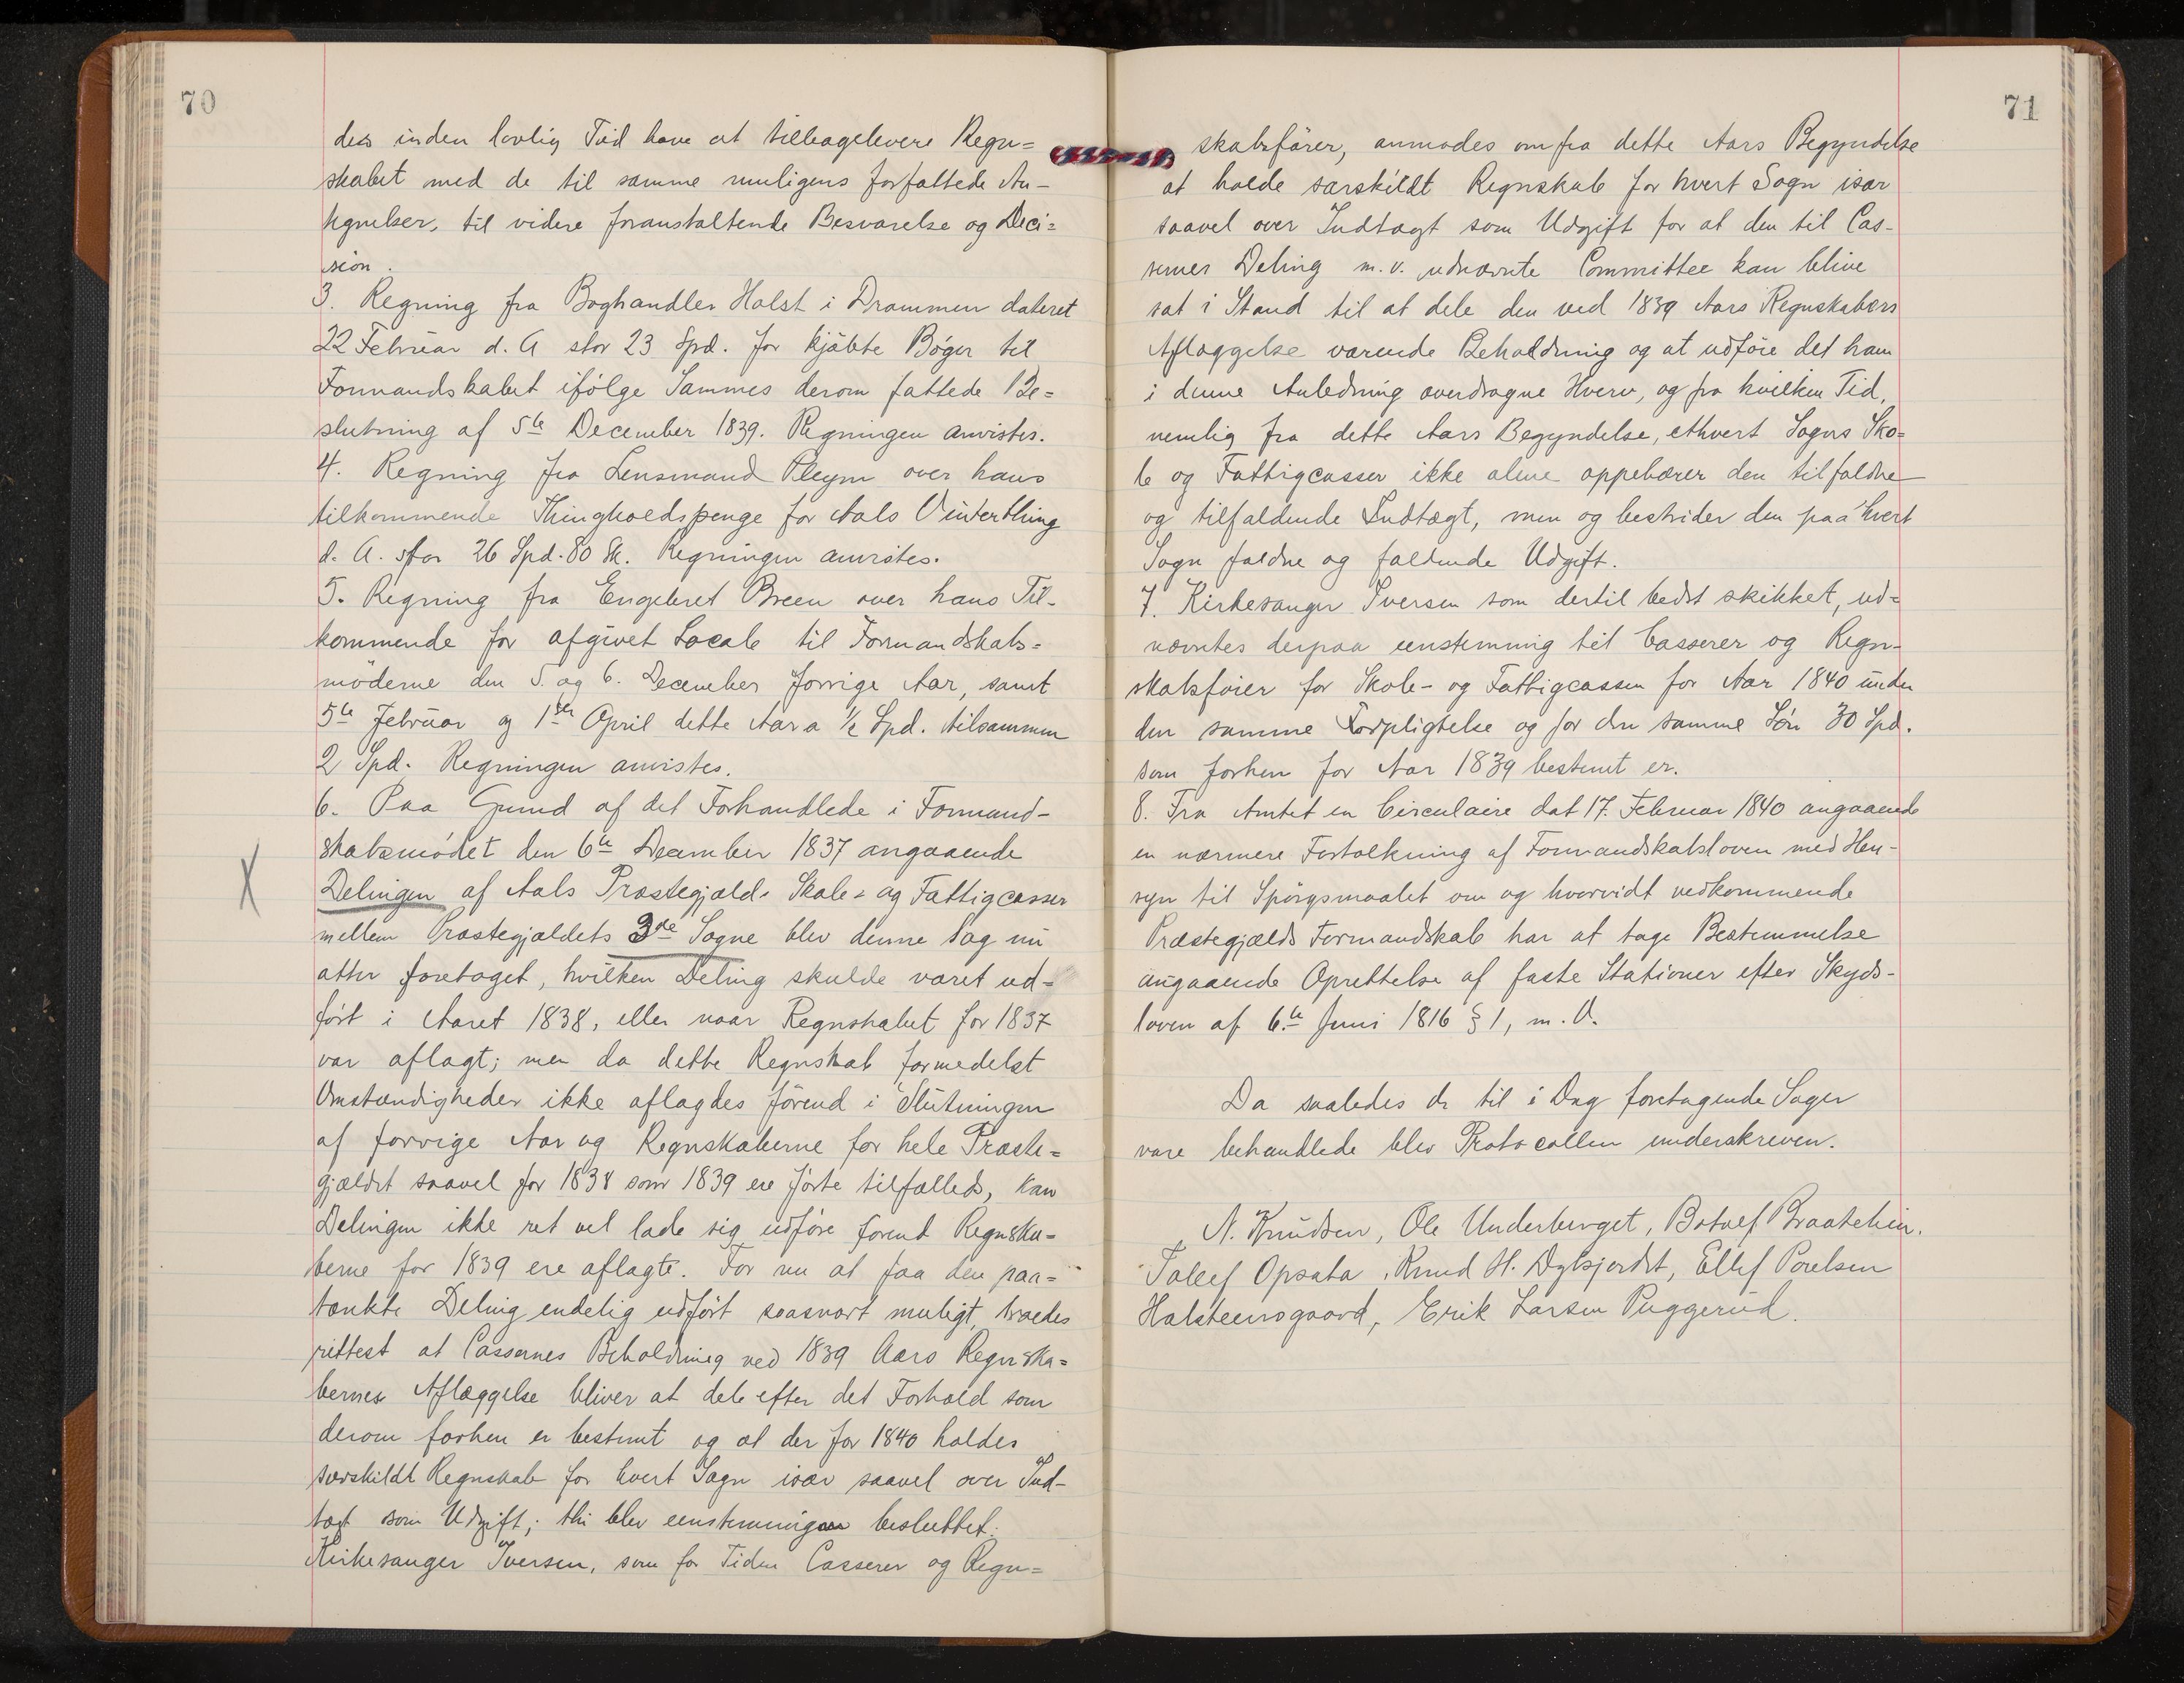 70
der inden lovlig Tid have at tilbagelevere Regn=
skabet med de til samme muligens forfattede An-
tegnelser, til videre foranstaltende Besvarelse og Deci=
sion.
3. Regning fra Boghandler Holst i Drammen dateret
22 Februar d. A stor 23 Spd. for kjøbte Bøger til
Formandskabet ifølge Sammes derom fattede Be=
slutning af 5te December 1839. Regningen anvistes.
4. Regning fra Lensmand Pleym over hans
tilkommende Thingholdspenge for Aals Vinterthing
d. A. stor 26 Spd. 80 Sk. Regningen anvistes.
5. Regning fra Engebret Breen over hans Til-
kommende for afgivet Locale til Formandskabs=
møderne den 5. og 6. December forrige Aar, samt
5te Februar og 1ste April dette Aar a ½ Spd. tilsammen
2 Spd. Regningen anvistes.
6. Paa Grund af det Forhandlede i Formand-
skabsmødet den 6te December 1837 angaaende
X
Delingen af Aals Præstegjælds Skole- og Fattigcasser
mellem Præstegjældets 3de Sogne blev denne Sag nu
atter foretaget, hvilken Deling skulde været ud-
ført i Aaret 1838, eller naar Regnskabet for 1837
var aflagt; men da dette Regnskab formedelst
Omstændigheder ikke aflagdes førend i Slutningen
af forrige Aar og Regnskaberne for hele Præste=
gjældet saavel for 1838 som 1839 ere førte tilfælleds, kan
Delingen ikke ret vel lade sig udføre førend Regnska=
berne for 1839 ere aflagte. For nu at faa den paa=
tænkte Deling endelig udført saasnart muligt, troedes
rettest at Cassernes Beholdning ved 1839 Aars Regnska=
bernes Aflæggelse bliver at dele efter det Forhold som
derom forhen er bestemt og at der for 1840 holdes
særskildt Regnskab for hvert Sogn især saavel over Ind-
tægt som Udgift; thi blev eenstemmigen besluttet:
Kirkesanger Iversen, som for Tiden Casserer og Regn=
71
skabsfører, anmodes om fra dette Aars Begyndelse
at holde særskildt Regnskab for hvert Sogn især
saavel over Indtægt som Udgift for at den til Cas-
sernes Deling m.v. udnævnte Committee kan blive
sat i Stand til at dele den ved 1839 Aars Regnskabers
Aflæggelse værende Beholdning og at udføre det ham
i denne Anledning overdragne Hverv, og fra hvilken Tid,
nemlig fra dette Aars Begyndelse, ethvert Sogns Sko=
le og Fattigcasser ikke alene oppebærer den tilfaldne
og tilfaldende Indtægt, men og bestrider den paa hvert
Sogn faldne og faldende Udgift.
7. Kirkesanger Iversen som dertil bedst skikket, ud=
nævntes derpaa eenstemmig til Casserer og Regn-
skabsfører for Skole- og Fattigcassen for Aar 1840 under
den samme Forpligtelse og for den samme Løn 30 Spd.
som forhen for Aar 1839 bestemt er.
8. Fra Amtet en Circulaire dat 17. Februar 1840 angaaende
en nærmere Fortolkning af Formandskabsloven med Hen-
syn til Spørgsmaalet om og hvorvidt vedkommende
Præstegjælds Formandskab har at tage Bestemmelse
angaaende Oprettelse af faste Stationer efter Skyds-
loven af 6.te Juni 1816 § 1, m. V.
Da saaledes de til i Dag foretagende Sager
vare behandlede blev Protocollen underskreven.
N. Knudsen, Ole Underberget, Botolf Braatelien.
Tollef Opsata, Knud H. Dyksjordet, Ellef Poulsen
Halsteensgaard, Erik Larsen Puggerud.